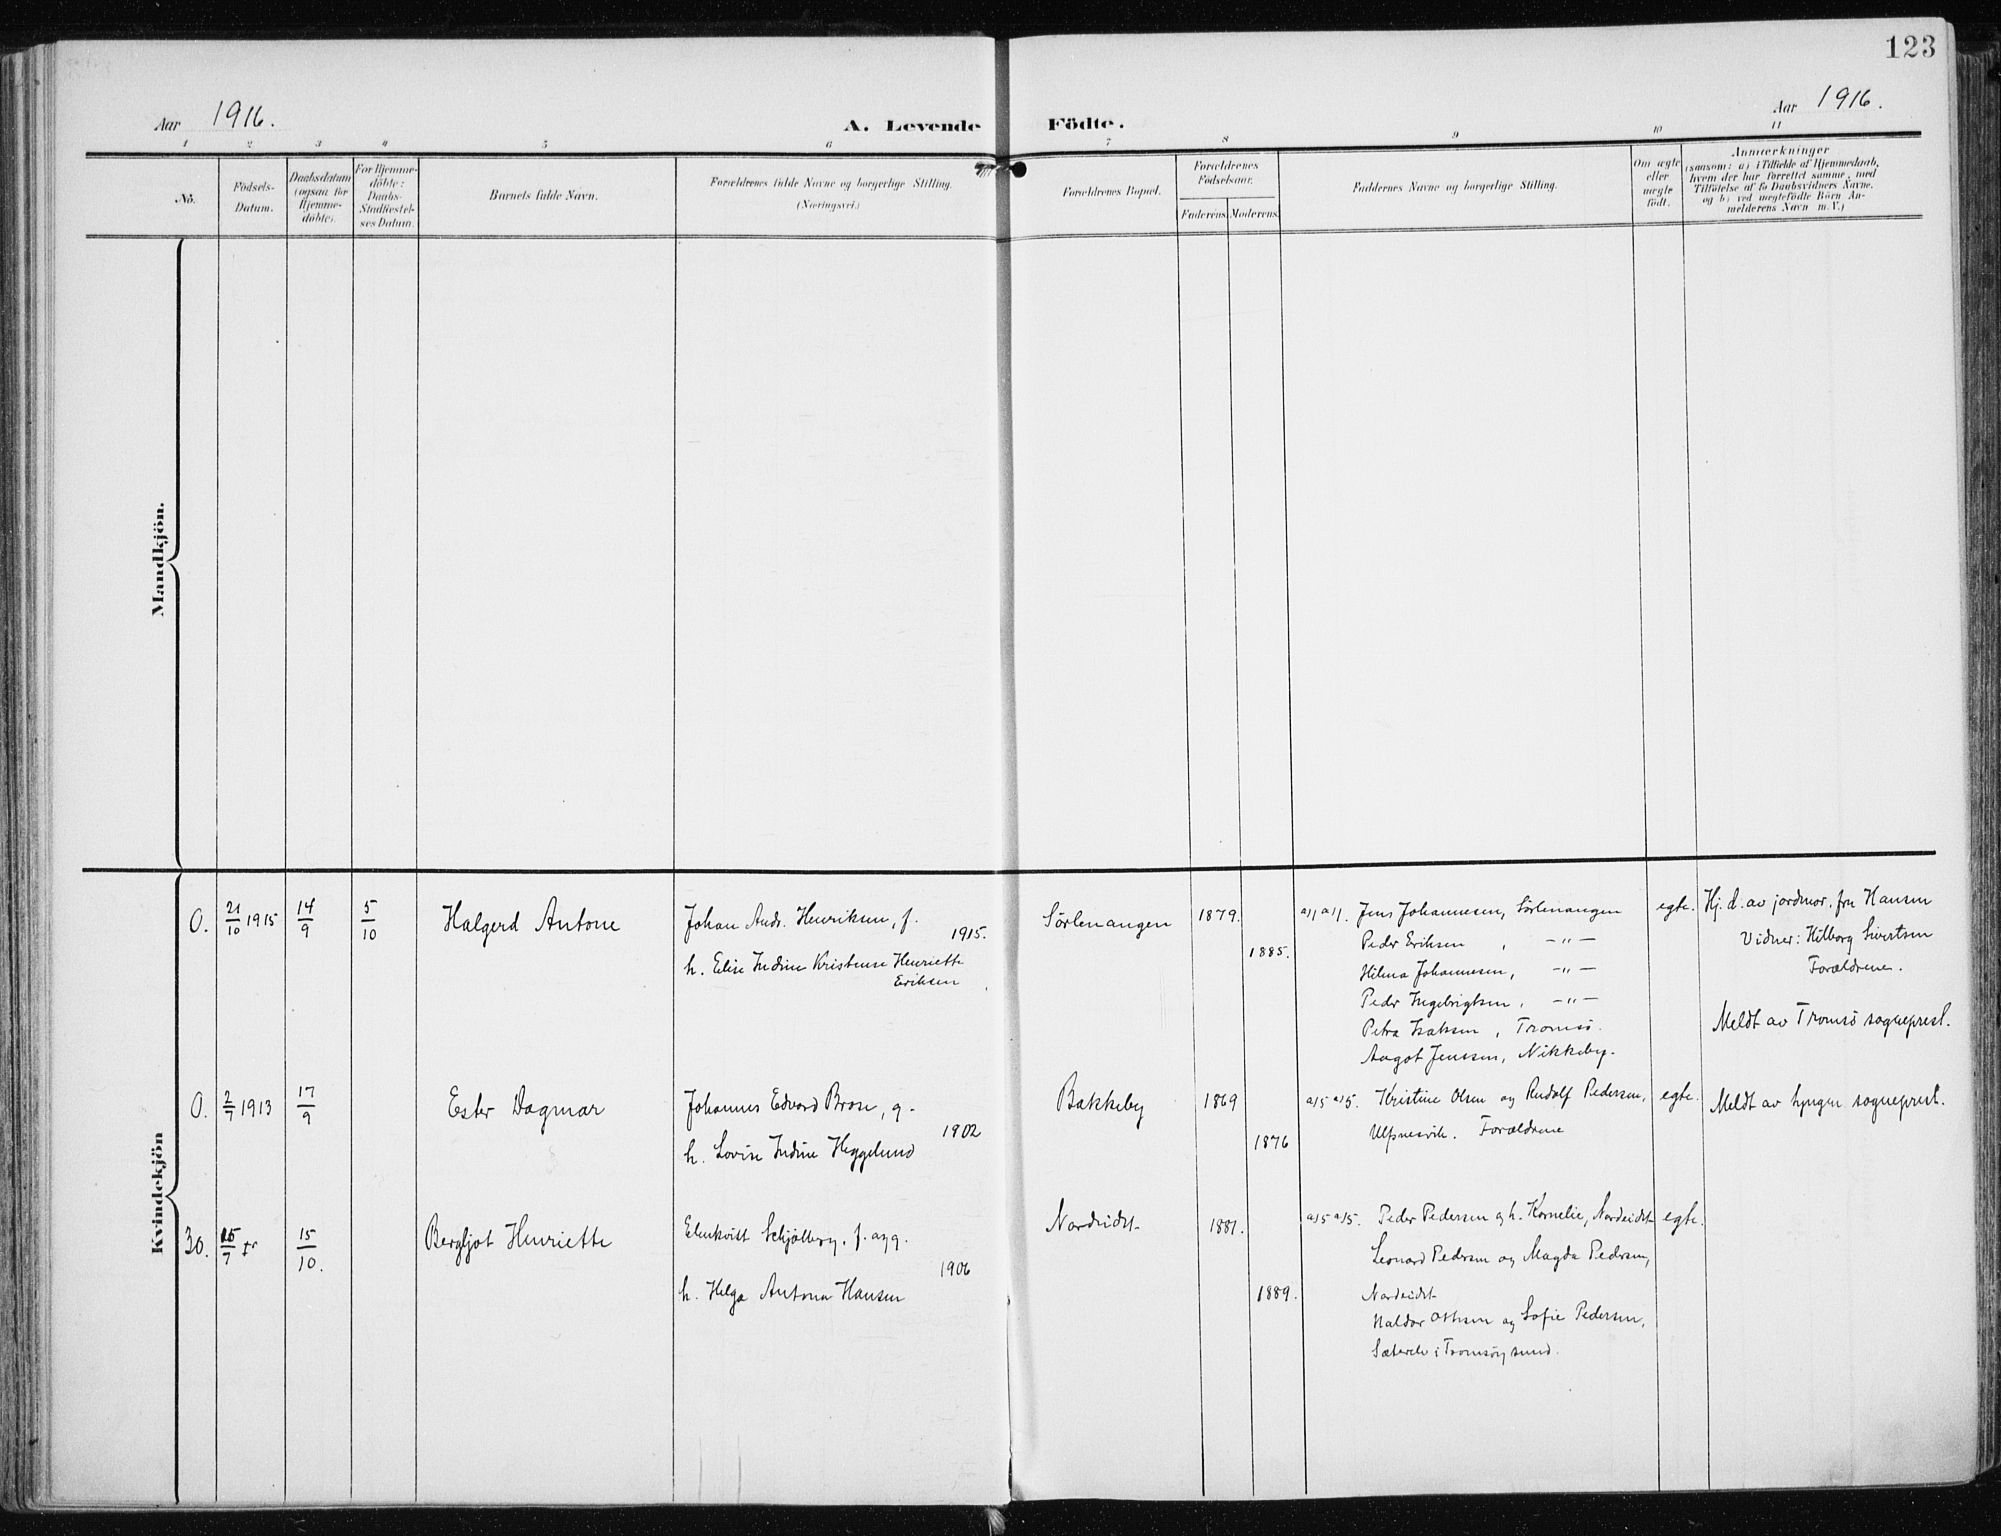 123
Aar 1916.
A. Levende Födte.
Aar 1916.
1 2 3 4 5 6 7 8 9 10 11
No.
Födsels-
Datum.
Daabsdatum
(ogsaa for
Hjemme-
döbte).
For Hjemme-
döbte:
Daabs-
Stadfæstel-
ses Datum.
Barnets fulde Navn.
Forældrenes fulde Navne og borgerlige Stilling.
(Næringsvei.)
Forældrenes Bopæl.
Forældrenes
Födselsaar.
Faderens. Moderens.
Faddernes Navne og borgerlige Stilling.
Om ægte
eller
uægte
född.
Anmærkninger
(saasom: a) i Tilfælde af Hjemmedaab,
hvem der har forrettet samme, med
Tilföielse af to Daabsvidners Navne.
og b) ved uægtefödte Börn An-
melderens Navn m. V.)
Mandkjön.
Kvindekjön
0. 21/10 1915 14/9 5/10 Halgerd Antone
Johan Andr. Henriksen, f.
1915.
h. Elise Indine Kristense Henriette
Eriksen
Sörlenangen 1879.
1885.
a/1 a/1. Jens Johannesen, Sörlenangen
Peder Eriksen, —〃—
Hilma Johannesen, —〃—
Peder Ingebrigtsen, —〃—
Petra Isaksen, Tromsö.
Aagot Jenssen, Nikkeby.
egte.
Hj. d. av jordmor. fru Hansen
Vidner: Hilborg Sivertsen
Forældrene.
Meldt av Tromsö sogneprest.
0. 2/7 1913 17/9 Ester Dagmar
Johannes Edvard Brose, g.
1902
h. Lovise Indine Heggelund
Bakkeby 1869
1876
a/5 a/5. Kristine Olsen og Rudolf Pedersen,
Ulfsnesvik. Forældrene
egte.
Meldt av Lyngen sogneprest.
30. /7 15/10. Bergljot Henriette
Schjölberg. f. og g.
1906
h. Helga Antona Hansen
Nordeidet 1881.
1889.
a/5 a/5. Peder Pedersen og h. Kornelie, Nordeidet
Leonard Pedersen og Magda Pedersen,
Nordeidet
Haldor og Sofie Pedersen,
i Tromsöysund.
egte.